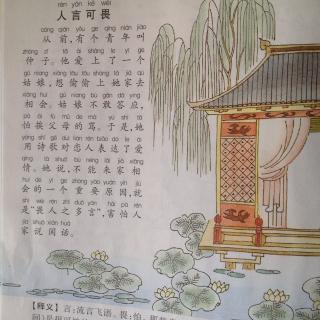 rén yán kě wèi
人言可畏
cóng qián yǒu gè qīng nián jiào
从前,有个青年叫
zhòng zǐ tā ài shàng le yí gè
仲子。他爱上了一个
gū niang xiǎng tōu tōu shàng tā jiā qù
姑娘,想偷偷上她家去
xiāng huì gū niang bù gǎn dā yìng
相会。姑娘不敢答应,
pà ái fù mǔ de mà yú shì tā
怕挨父母的骂。于是,她
yòng shī gē duì liàn rén biǎo dá le ài
用诗歌对恋人表达了爱
qíng tā shuō bù néng lái jiā xiāng
情。她说,不能来家相
huì de yí gè zhòng yào yuán yīn jiù
会的一个重要原因,就
shì wèi rén zhī duō yán hài pà rén
是“畏人之多言”,害怕人
jiā shuō xián huà
家说闲话。
【释义】言:流言飞语。畏:怕。